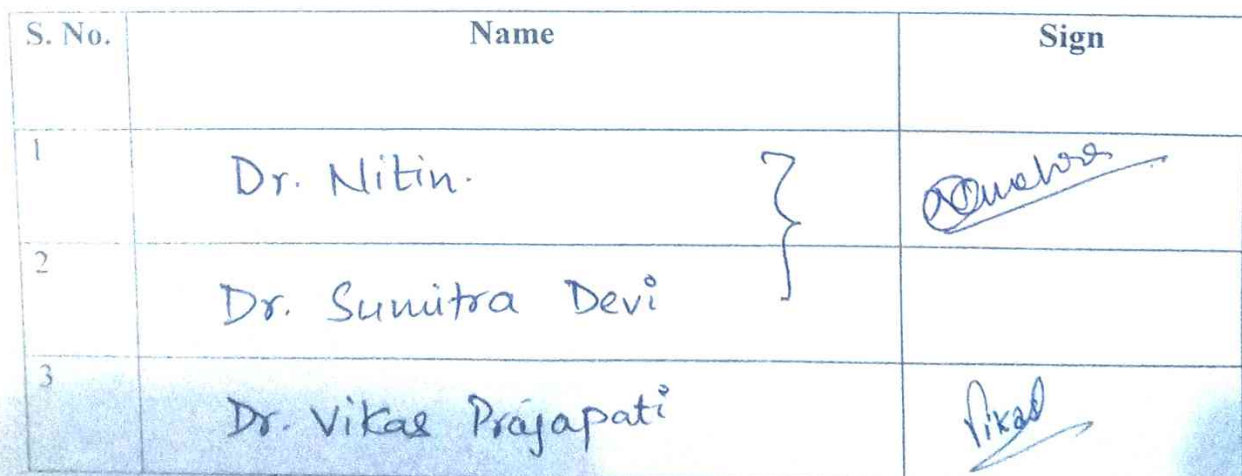 S. No. Name Sign
1 Dr. Nitin.
2 Dr. Sumitra Devi
3 Dr. Vikas Prajapati Vikas